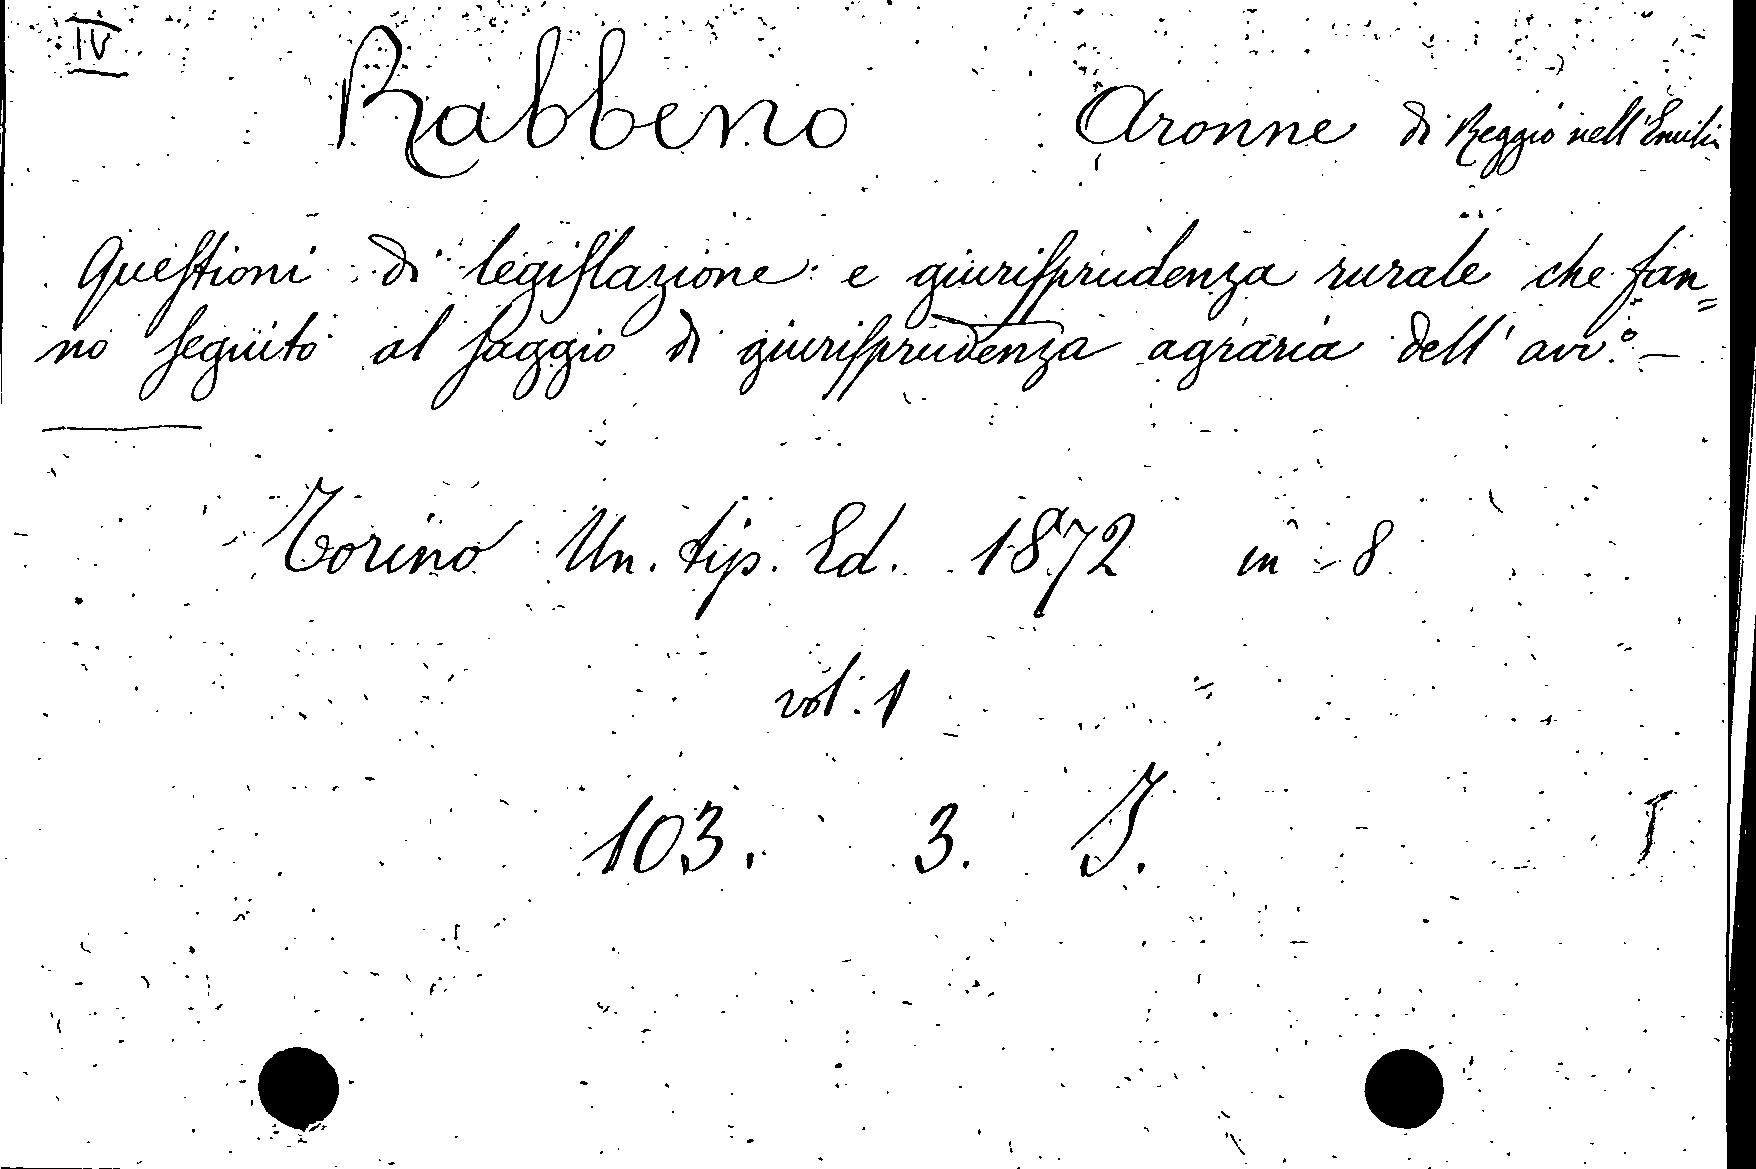 IV
Rabbeno Aronne di Reggio nell'Emilia
Questioni di legislazione e giurisprudenza rurale che fan=
no seguito al saggio di giurisprudenza agraria dell' avv.º —
Torino Un. tip. Ed. 1872 in - 8
vol. 1
103. 3. I.